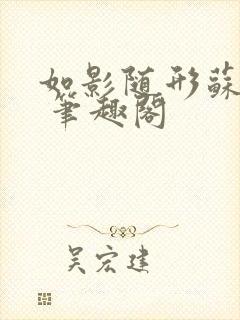 如影随形蘇
筆趣閣
吴宏建